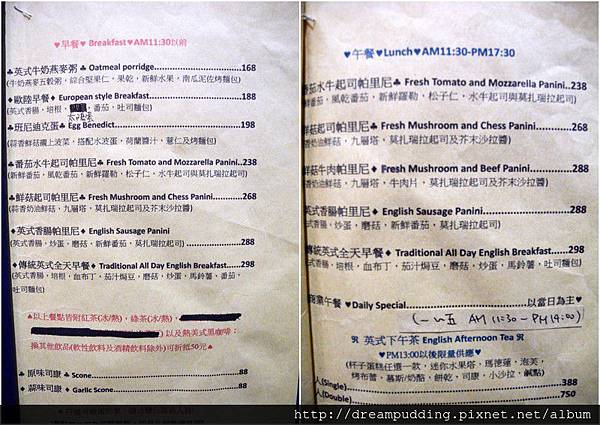 ♥早餐♥ Breakfast♥AM11:30以前
♣英式牛奶燕麥粥♣ Oatmeal porridge.....168
(牛奶燕麥五穀粥，綜合堅果仁，果乾，新鮮水果，南瓜泥佐烤麵包)
♦歐陸早餐♦ European style Breakfast.....188
(英式香腸，培根，番茄，吐司麵包)
♣班尼迪克蛋♣ Egg Benedict.....198
(蒜香鮮菇襯上波菜，搭配水波蛋，荷蘭醬汁，薏仁及烤麵包)
♣番茄水牛起司帕里尼♣ Fresh Tomato and Mozzarella Panini..238
(新鮮番茄，風乾番茄，新鮮羅勒，松子仁，水牛起司與莫扎瑞拉起司)
♣鮮菇起司帕里尼♣ Fresh Mushroom and Chess Panini.....268
(蒜香奶油鮮菇，九層塔，莫扎瑞拉起司及芥末沙拉醬)
♦英式香腸帕里尼♦ English Sausage Panini
(英式香腸，炒蛋，磨菇，新鮮番茄，莫扎瑞拉起司).....288
♦傳統英式全天早餐♦ Traditional All Day English Breakfast.....298
(英式香腸，培根，血布丁，茄汁焗豆，磨菇，炒蛋，馬鈴薯，番茄，
吐司麵包)
♠以上餐點皆附紅茶(冰/熱)，綠茶(冰/熱)，
以及熱美式黑咖啡；
換其他飲品(軟性飲料及酒精飲料除外)可折抵50元♠
♣ 原味司康 ♣ Scone.....88
♦ 蒜味司康 ♦ Garlic Scone.....88
♥午餐♥Lunch♥AM11:30-PM17:30
番茄水牛起司帕里尼♣ Fresh Tomato and Mozzarella Panini..238
新鮮番茄，風乾番茄，新鮮羅勒，松子仁，水牛起司與莫扎瑞拉起司)
鮮菇起司帕里尼♣ Fresh Mushroom and Chess Panini.....268
香奶油鮮菇，九層塔，莫扎瑞拉起司及芥末沙拉醬)
鮮菇牛肉帕里尼♣ Fresh Mushroom and Beef Panini.....288
香奶油鮮菇，九層塔，牛肉片，莫扎瑞拉起司及芥末沙拉醬)
英式香腸帕里尼♦ English Sausage Panini.....288
英式香腸，炒蛋，磨菇，新鮮番茄，莫扎瑞拉起司)
傳統英式全天早餐♦ Traditional All Day English Breakfast.....298
英式香腸，培根，血布丁，茄汁焗豆，磨菇，炒蛋，馬鈴薯，吐司麵包)
商業午餐 ♥Daily Special.....以當日為主♥
(一~五 AM 11:30 - PM 14:00)
英式下午茶 English Afternoon Tea
♥PM13:00以後限量供應♥
(杯子蛋糕任選一款，迷你水果塔，瑪德蓮，泡芙，
烤布蕾，慕斯/奶酪，餅乾，司康，小沙拉，鹹點)
人(Single).....388
人(Double).....750
http://dreampudding.pixnet.net/album